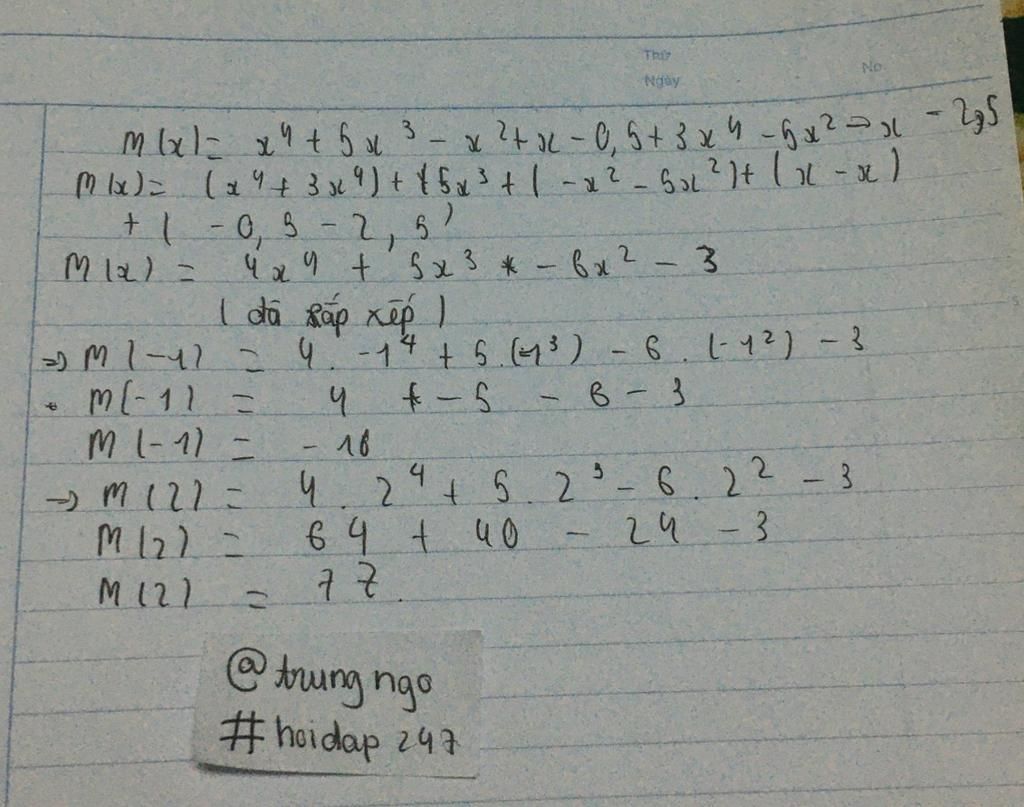 Thứ
Ngày
No
M(x) = x⁴ + 5x³ - x² + x - 0,5 + 3x⁴ - 5x² - x - 2,5
M(x) = (x⁴ + 3x⁴) + (5x³ + ( - x² - 5x²) + (x - x)
+ ( - 0,5 - 2,5)
M(x) = 4x⁴ + 5x³ - 6x² - 3
( đã sắp xếp )
=> M(-1) = 4 . -1⁴ + 5 . (-1³) - 6 . (-1²) - 3
M(-1) = 4 - 5 - 6 - 3
M(-1) = - 10
-> M(2) = 4 . 2⁴ + 5 . 2³ - 6 . 2² - 3
M(2) = 64 + 40 - 24 - 3
M(2) = 77.
@trung ngo
#hoidap 247